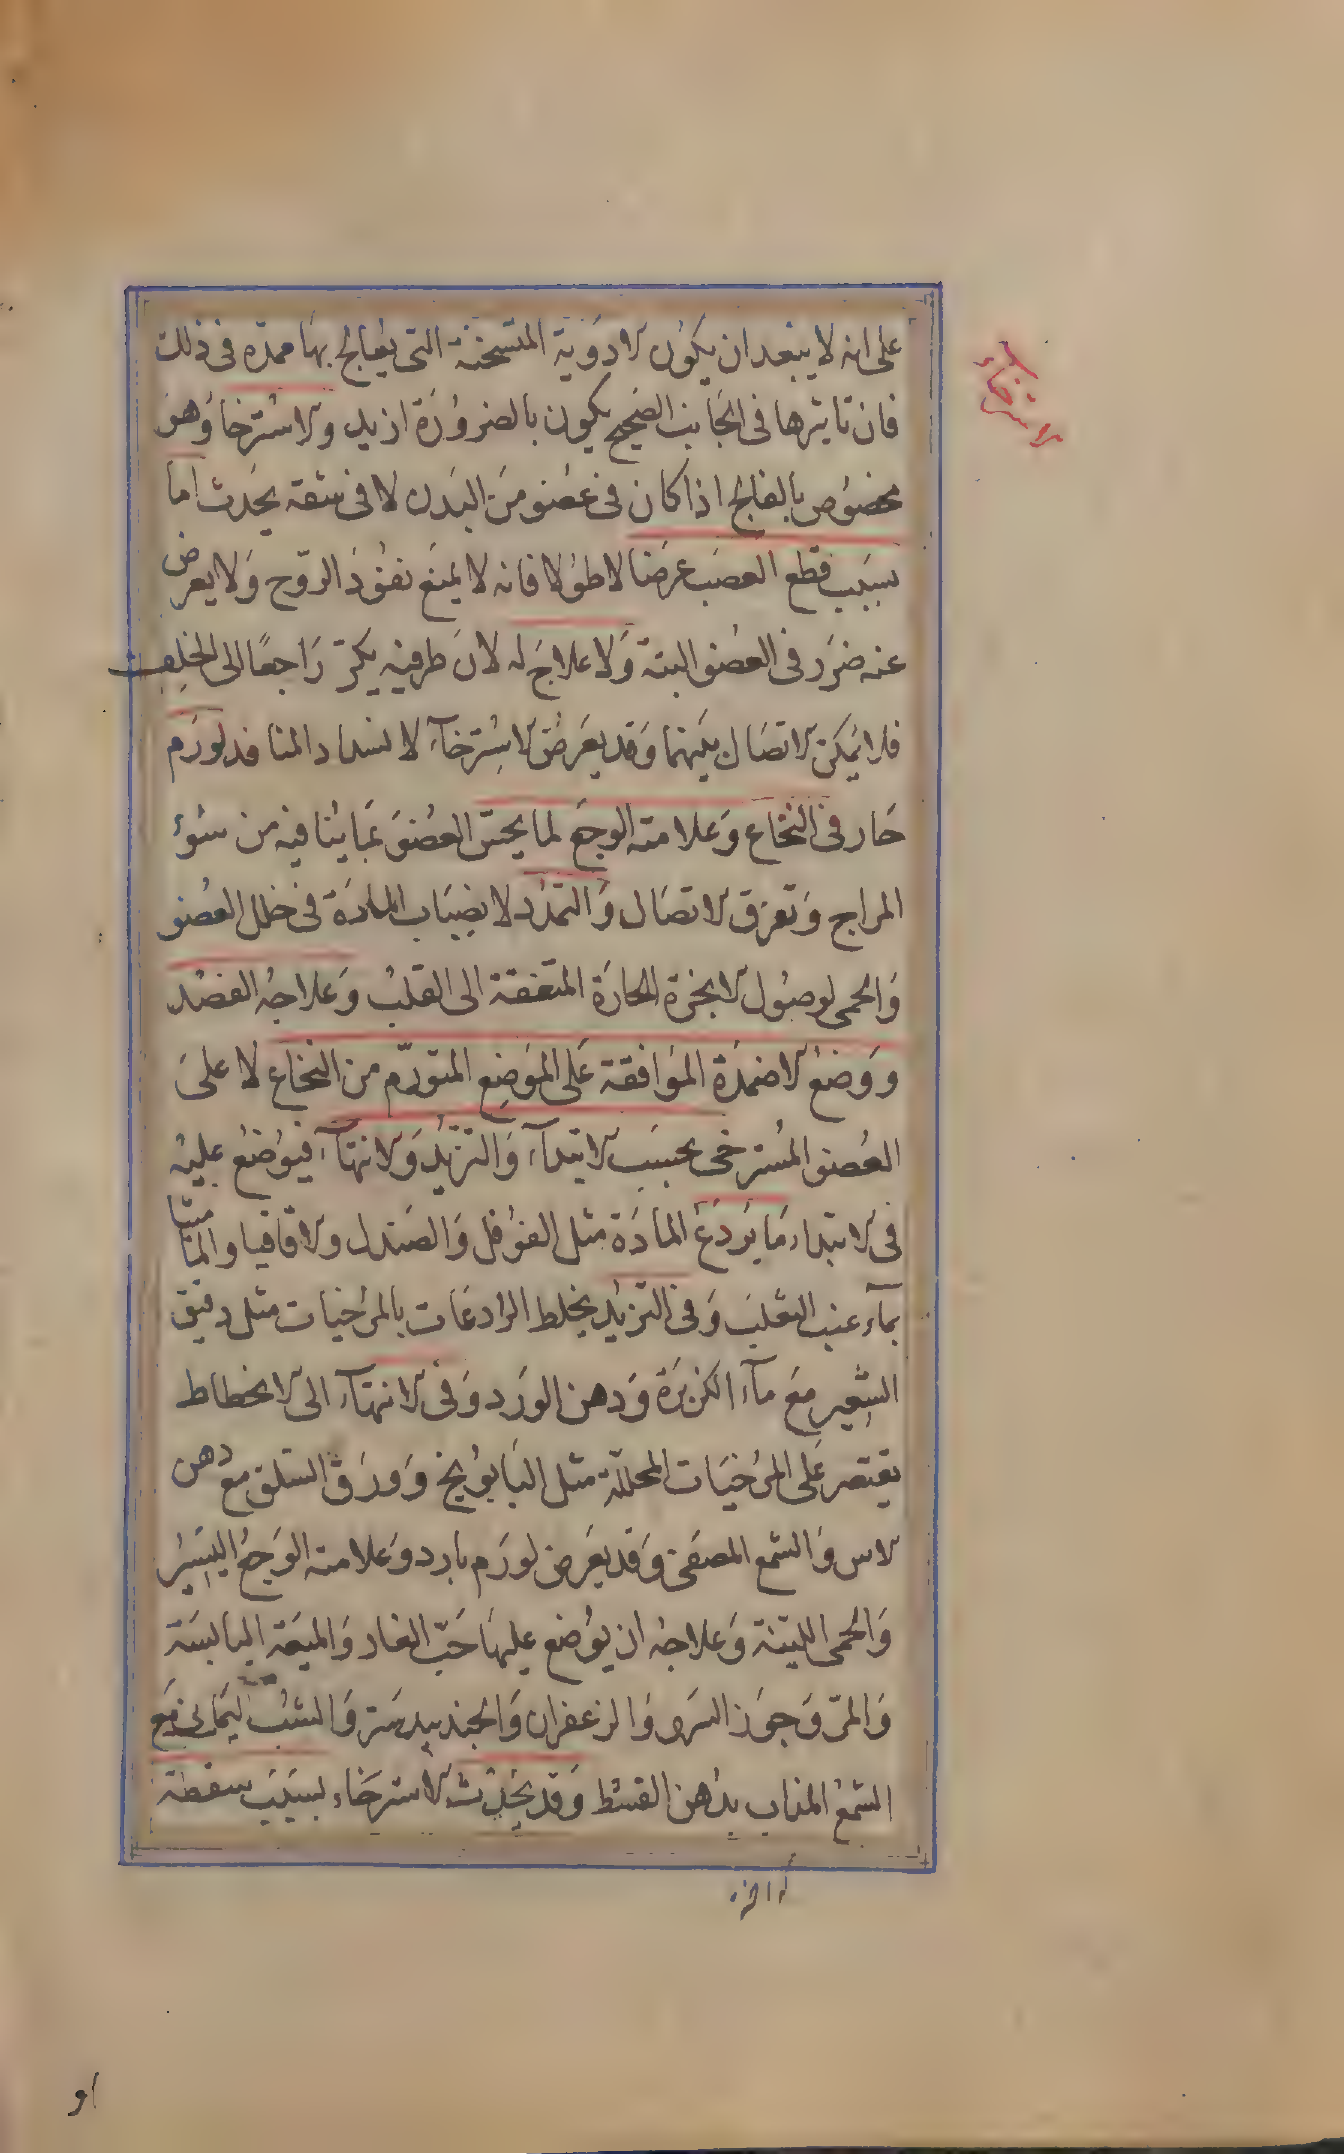 الاسترخاء
على انه لا يبعد ان يكون الادوية المتسخنة التى يعالج بها ممدّه فى ذلك
فان تاثيرها فى الجانب الصحيح يكون بالضرورة ازيد والاسترخا وهو
مخصوص بالفالج اذا كان فى عضو من البدن لا فى شقه يحدث اما
بسبب قطع العصب عرضا لا طولا فانه لا يمنع نفوذ الروح ولا يعرض
عنه ضرر فى العضو البتة ولا علاج له لان طرفيه يكرّ راجعا الى الخلف
فلا يمكن الاتصال بينهما وقد يعرض الاسترخآء لانسداد المنافذ لورم
حار فى النخاع وعلامته الوجع لما يحسّ العضو بما ينافيه من سوء
المزاج وتفرق الاتصال والتمدد لانصباب المادة فى خلل العضو
والحمى لوصول الابخرة الحارة المتعفنة الى القلب وعلاجه الفصد
ووضع الاضمدة الموافقة على الموضع المتورّم من النخاع لا على
العضو المسترخى بحسب الابتدآء والتزيد والانتهآء فيوضع عليه
فى الابتداء ما يردع المادة مثل الفوفل والصندل والاقاقيا والماميثا
بمآء عنب الثعلب وفى التزيد يخلط الرادعات بالمرخيات مثل دقيق
الشعير مع مآء الكزبرة ودهن الورد وفى الانتهآء الى الانحطاط
يقتصر على المرخيات المحللة مثل البابونج وورق السلق مع دهن
الاس والشمع المصفى وقد يعرض لورم بارد وعلامته الوجع اليسير
والحمى اللينة وعلاجه ان يوضع عليها حبّ الغار والميعة اليابسة
والمرّ وجوز السرو والزعفران والجندبيدستر والشب اليمانى مع
الشمع المذاب بدهن القسط وقد يحدث الاسترخاء بسبب سقطة
او